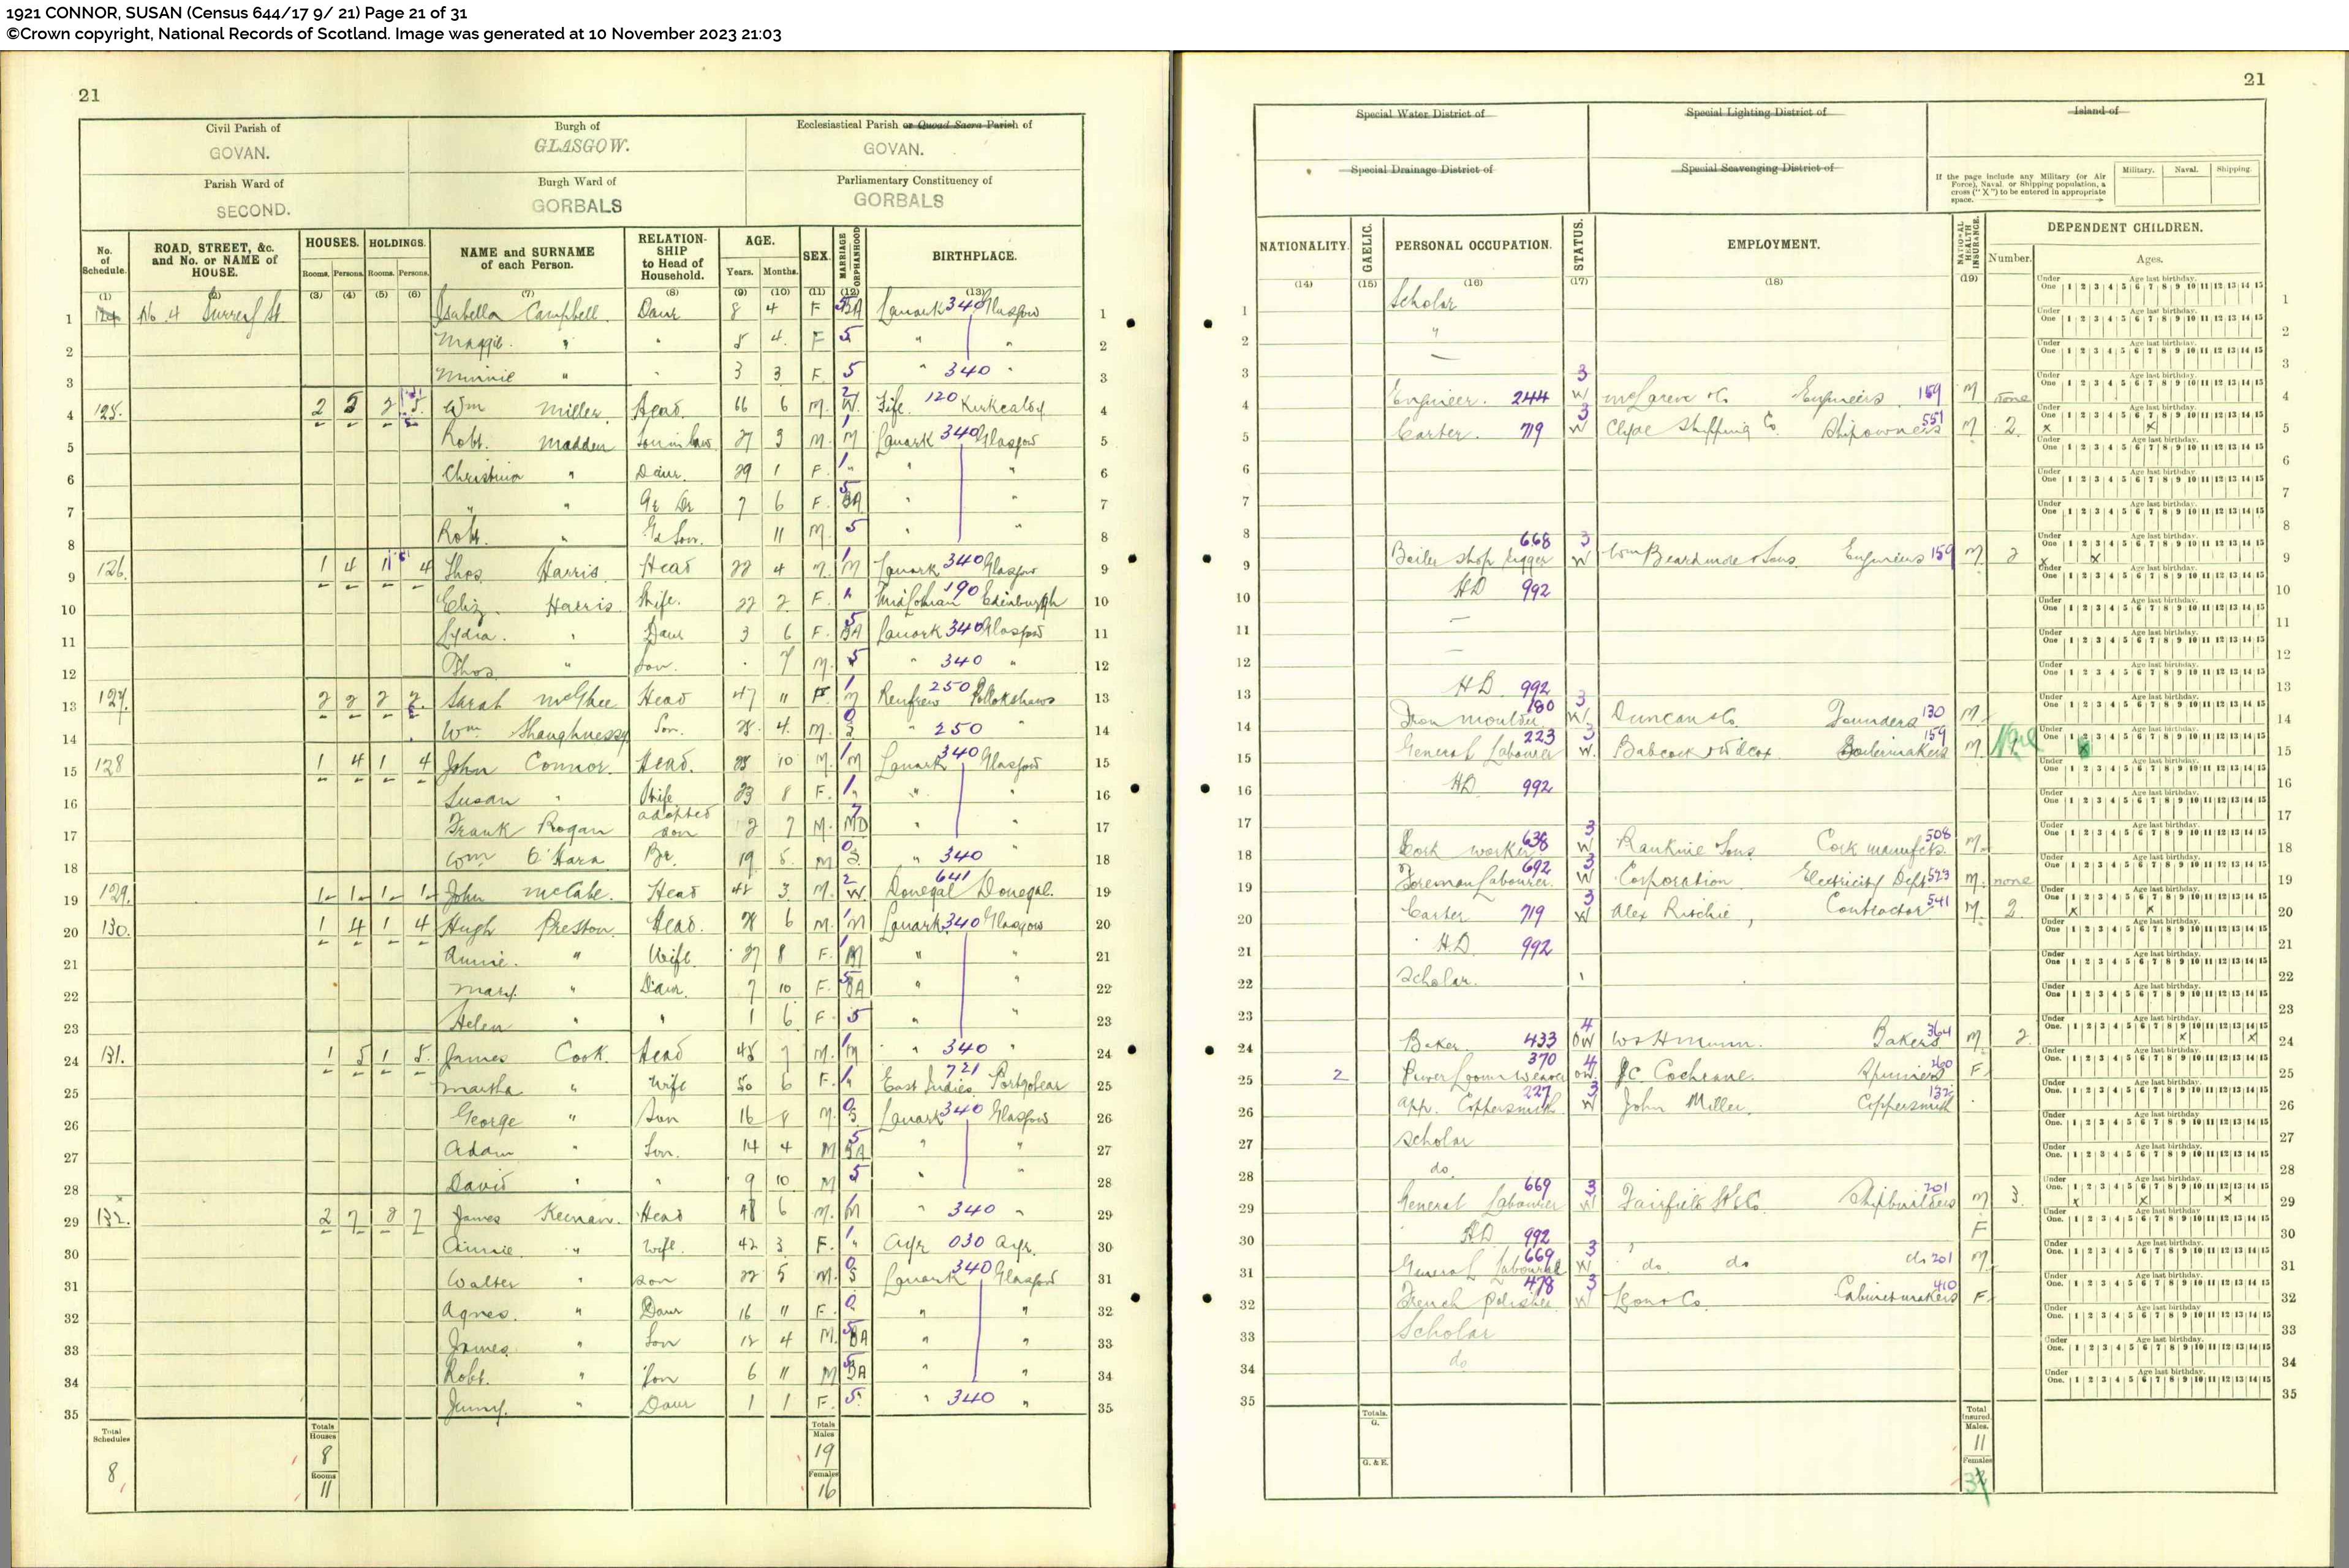 1921 CONNOR, SUSAN (Census 644/17 9/ 21) Page 21 of 31
©Crown copyright, National Records of Scotland. Image was generated at 10 November 2023 21:03
21
Civil Parish of GOVAN. Burgh of GLASGOW. Ecclesiastical Parish or Quoad Sacra Parish of GOVAN.
Parish Ward of SECOND. Burgh Ward of GORBALS Parliamentary Constituency of GORBALS
No. of Schedule. ROAD, STREET, &c. and No. or NAME of HOUSE. HOUSES. HOLDINGS. NAME and SURNAME of each Person. RELATIONSHIP to Head of Household. AGE. SEX. MARRIAGE ORPHANHOOD BIRTHPLACE.
Rooms. Persons. Rooms. Persons. Years. Months.
(1) (2) (3) (4) (5) (6) (7) (8) (9) (10) (11) (12) (13)
1 124 No. 4 Surrey St. Isabella Campbell Daur 8 4 F 5 BA Lanark 340 Glasgow 1
2 Maggie " " 5 4 F 5 " " 2
3 Minnie " " 3 3 F 5 " 340 " 3
4 125. 2 5 2 5 Wm Miller Head 66 6 M. 2 W. Fife. 120 Kirkcaldy 4
5 Robt. Madden Son in law 27 3 M. 1 M Lanark 340 Glasgow 5
6 Christina " Daur. 29 1 F. 1 " " " 6
7 " " Gr Dr 7 6 F. 5 BA " " 7
8 Robt. " Gd Son. 11 M. 5 " " 8
9 126. 1 4 1 4 Thos Harris Head 22 4 M. 1 M Lanark 340 Glasgow 9
10 Eliz. Harris Wife. 22 2 F. " Midlothian 190 Edinburgh 10
11 Lydia. " Daur 3 6 F. 5 BA Lanark 340 Glasgow 11
12 Thos " Son. 7 M. 5 " 340 " 12
13 127. 2 2 2 2. Sarah McGhee Head 47 11 F 1 M Renfrew 250 Pollokshaws 13
14 Wm Shaughnessy Son. 4. M. 0 S " 250 14
15 128 1 4 1 4 John Connor Head. 10 M. 1 M Lanark 340 Glasgow 15
16 Susan " Wife 23 8 F. 1 " " " 16
17 Frank Rogan adopted son 2 7 M. 7 MD " " 17
18 Wm O'Hara Br. 19 5. M 0 S. " 340 " 18
19 129. 1 1 1 1 John McCabe. Head 3. M. 2 W. Donegal 641 Donegal. 19
20 130. 1 4 1 4 Hugh Preston. Head. 28 6 M. 1 M Lanark 340 Glasgow 20
21 Annie. " Wife. 27 8 F. 1 M " " 21
22 Mary. " Daur. 7 10 F. 5 BA " " 22
23 Helen " " 1 6 F. 5 " " 23
24 131. 1 5 1 5. James Cook. Head 45 7 M. 1 M " 340 " 24
25 Martha " Wife 50 6 F. 1 " East Indies 721 25
26 George " Son 16 8 M. 0 S. Lanark 340 Glasgow 26
27 Adam " Son. 14 4 M 5 BA " " 27
28 David " " 9 10 M 5 " " 28
29 132. 2 7 2 7 James Keenan. Head 48 6 M. 1 M " 340 " 29
30 Annie. " Wife. 42 3 F. 1 " Ayr 030 Ayr. 30
31 Walter " Son 22 5 M. 0 S Lanark 340 Glasgow 31
32 Agnes. " Daur 16 11 F. 0 " " 32
33 James. " Son 12 4 M. 5 BA " " 33
34 Robt. " Son 6 11 M 5 BA " " 34
35 Jenny. " Daur 1 1 F. 5 " 340 " 35
Total Schedules 8 Totals Houses 8 Rooms 11 Totals Males 19 Females 16
21
Special Water District of Special Lighting District of Island of
Special Drainage District of Special Scavenging District of
If the page include any Military (or Air Force), Naval, or Shipping population, a cross ("X") to be entered in appropriate space. Military. Naval. Shipping.
NATIONALITY. GAELIC. PERSONAL OCCUPATION. STATUS. EMPLOYMENT. NATIONAL HEALTH INSURANCE. DEPENDENT CHILDREN.
Number. Ages.
(14) (15) (16) (17) (18) (19)
Under One Age last birthday. 1 2 3 4 5 6 7 8 9 10 11 12 13 14 15
1 Scholar 1
2 " 2
3 — 3
4 Engineer. 244 3 W McLaren & Co Engineers 159 M None 4
5 Carter. 719 3 W Clyde Shipping Co. Shipowners 551 M 2 5
6 6
7 7
8 8
9 Boiler shop 668 3 W Wm Beardmore & Sons Engineers 159 M. 2 9
10 HD 992 10
11 — 11
12 — 12
13 HD 992 13
14 Iron Moulder 180 3 W Duncan & Co. Founders 130 M 14
15 General Labourer 223 3 W. Babcock & Wilcox Boilermakers 159 M 15
16 HD 992 16
17 17
18 Cork worker 638 3 W Rankine Sons Cork manufrs. 508 M. 18
19 Foreman Labourer. 692 3 W Corporation Electricity Dept 523 M. none 19
20 Carter 719 3 W Alex Ritchie, Contractor 541 M. 2. 20
21 H.D. 992 21
22 Scholar. 22
23 23
24 Baker 433 4 OW Bakers 364 M 2 24
25 2 Power Loom Weaver 370 4 OW JC Cochrane. Spinners 360 F 25
26 app. Coppersmith 227 3 W John Miller. Coppersmith 26
27 Scholar 27
28 do. 28
29 General Labourer 669 3 W Fairfield Shipbuilders 201 M 3. 29
30 HD 992 F 30
31 General Labourer 669 3 W do. do do 201 M 31
32 French polisher. 478 3 W Cabinetmakers 410 F 32
33 Scholar 33
34 do 34
35 35
Totals. G. G. & E. Total Insured. Males. 11 Females